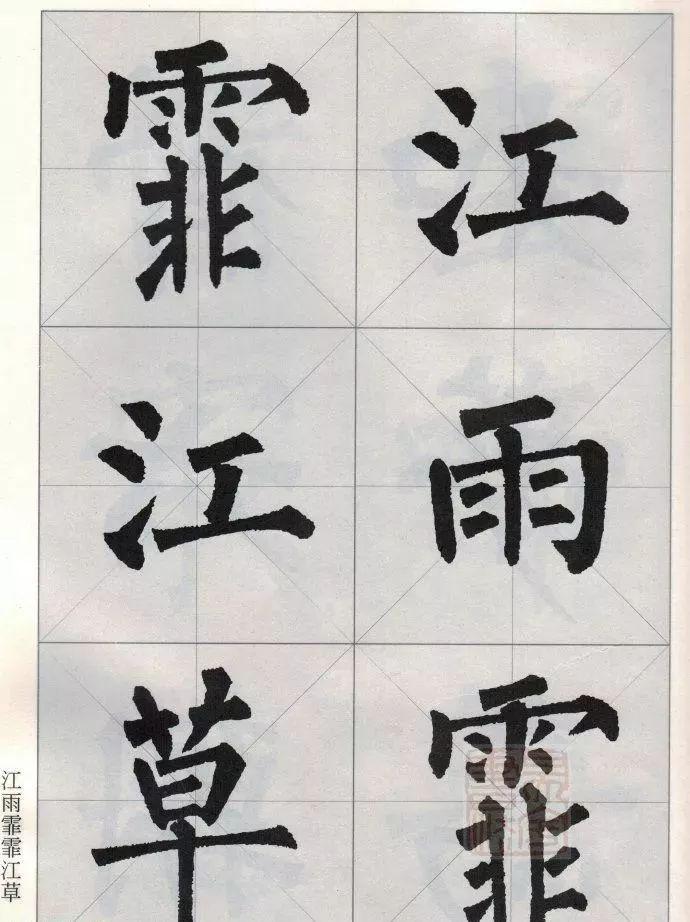 江雨霏
霏江草
江雨霏霏江草